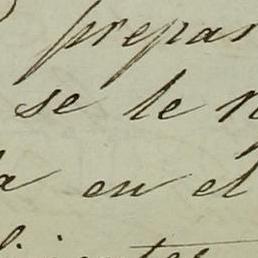 prepar
se le n
la en el